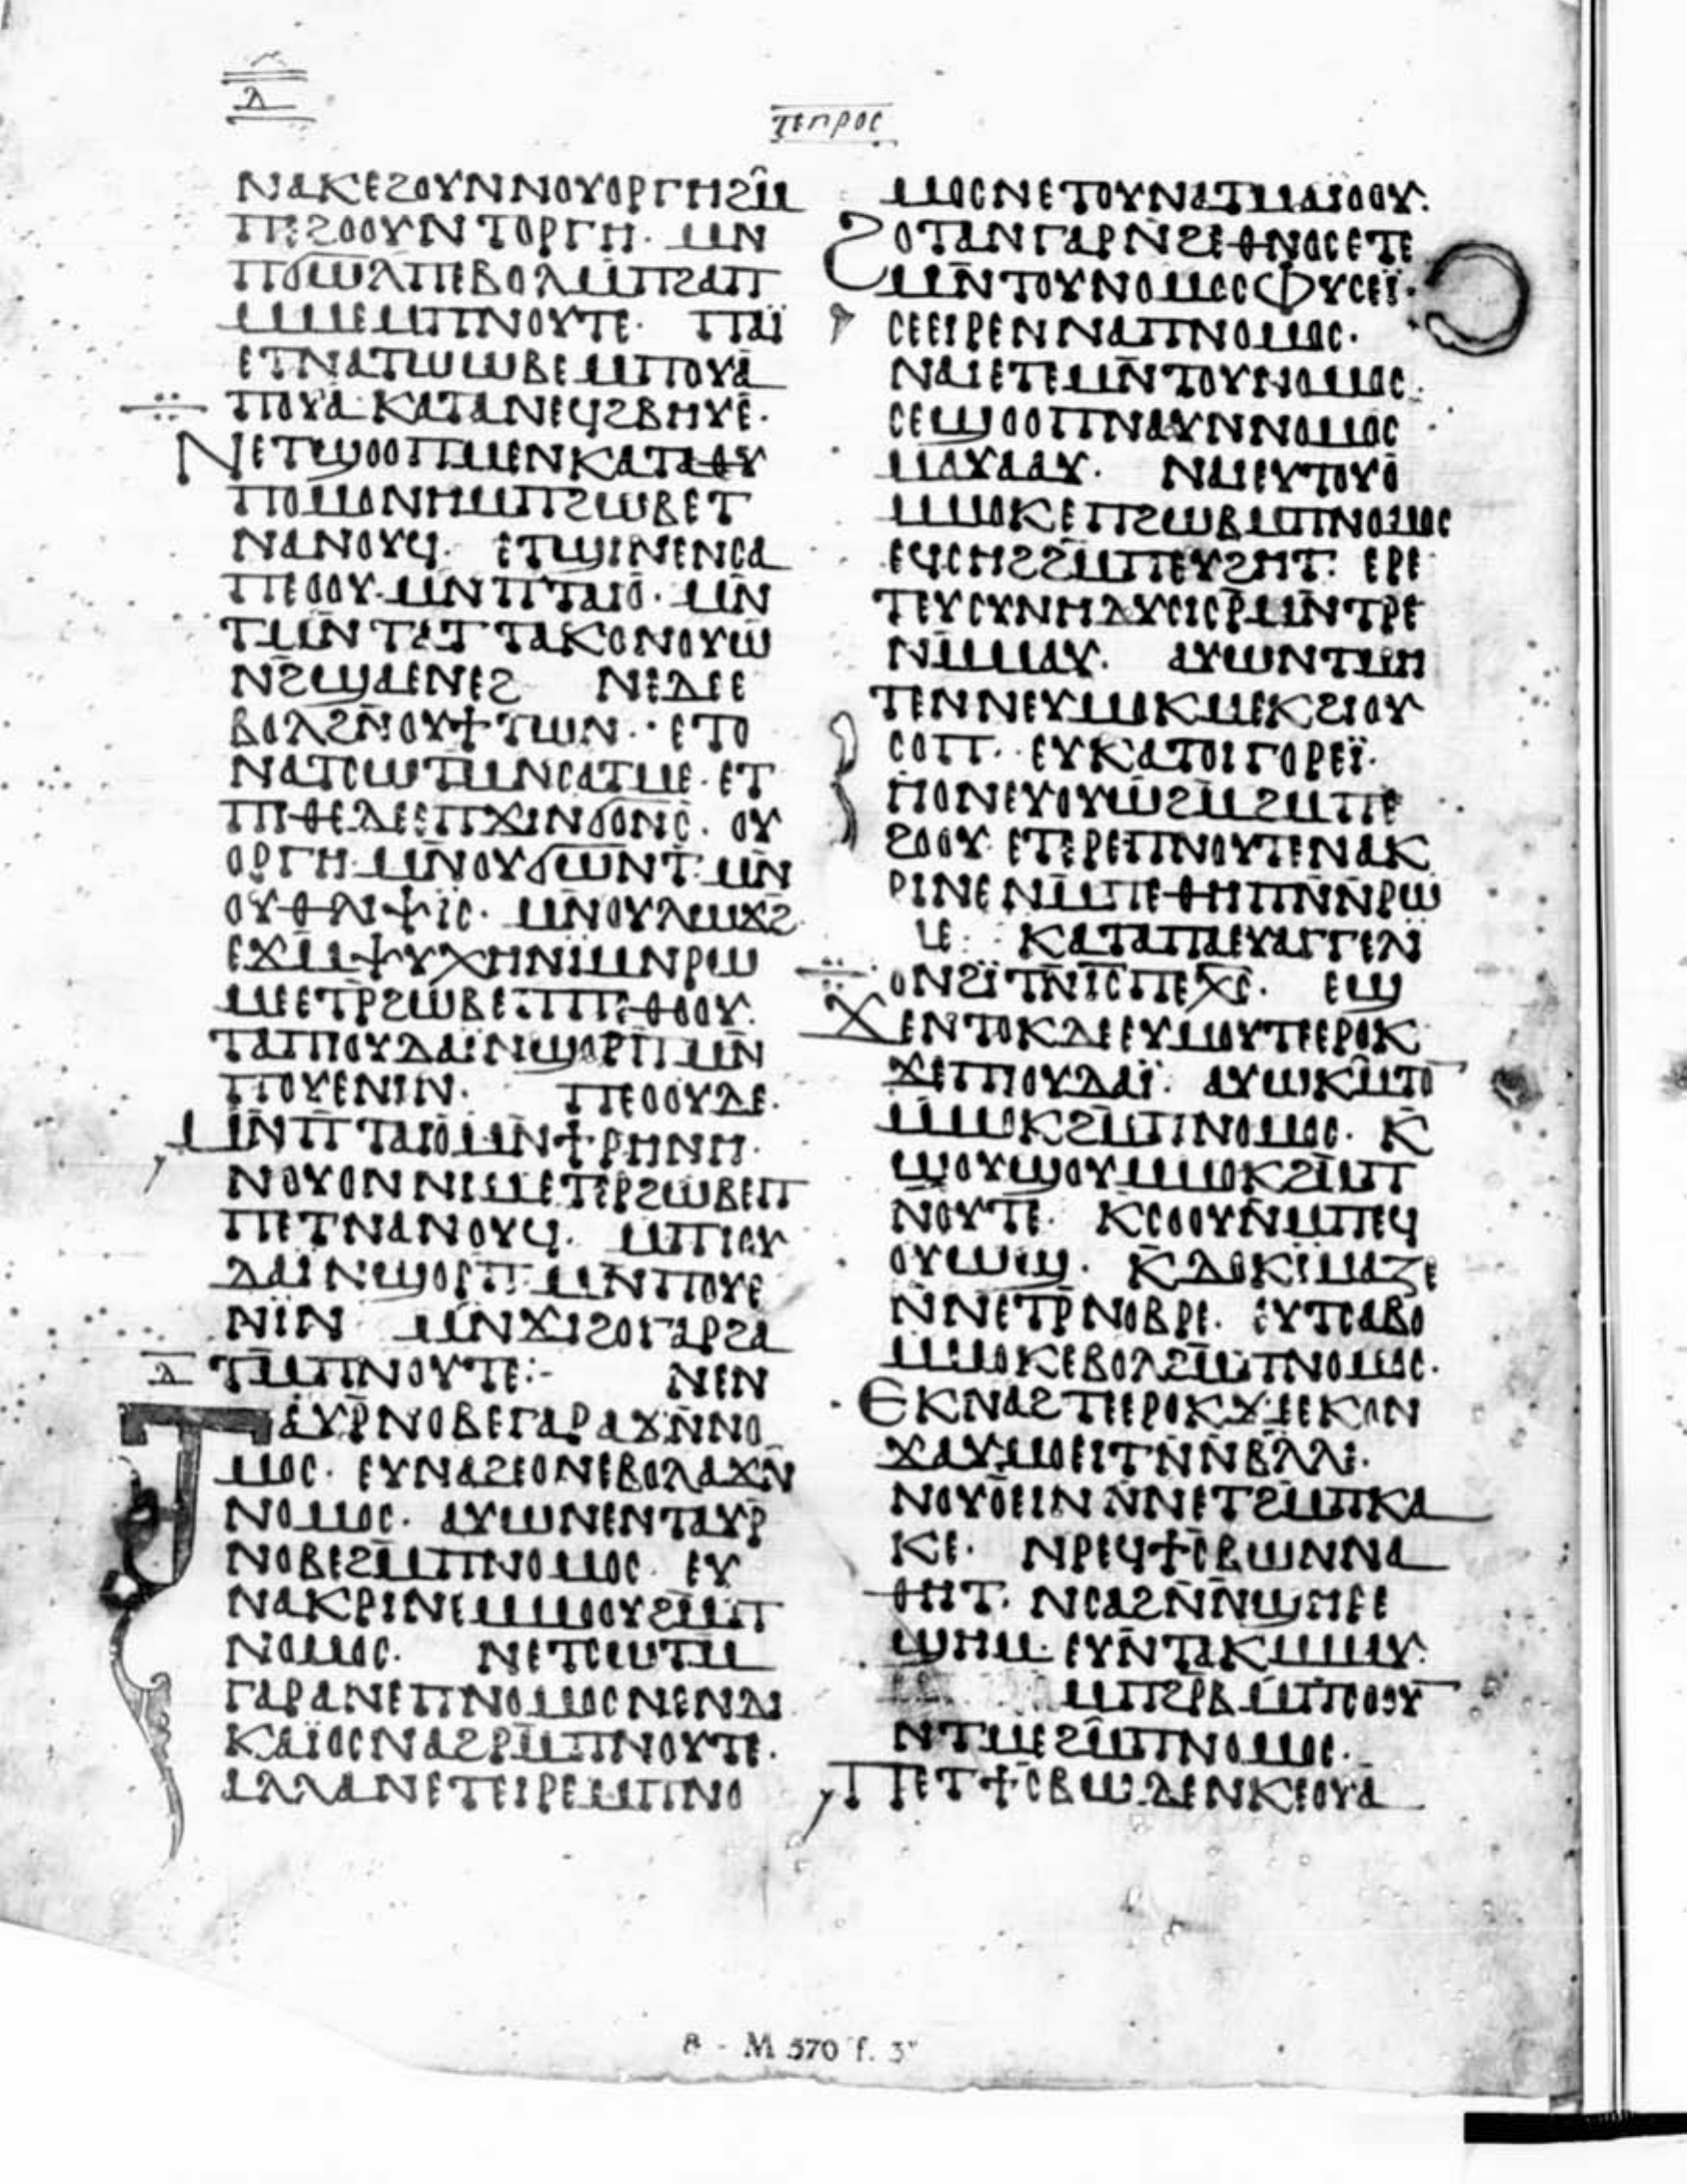 ⲇ
ⲧⲉⲡⲣⲟⲥ
ⲛⲁⲕⲉϩⲟⲩⲛⲛⲟⲩⲟⲣⲅⲏϩⲙ̂
ⲡⲉϩⲟⲟⲩⲛⲧⲟⲣⲅⲏ· ⲙⲛ
ⲡϭⲱⲗⲡⲉⲃⲟⲗⲙ̄ⲡϩⲁⲡ
ⲙⲙⲉⲙⲡⲛⲟⲩⲧⲉ· ⲡⲁⲓ̈
ⲉⲧⲛⲁⲧⲱⲱⲃⲉⲙⲡⲟⲩⲁ̄
ⲡⲟⲩⲁ̄ⲕⲁⲧⲁⲛⲉϥϩⲃⲏⲩⲉ̄·
ⲛⲉⲧϣⲟⲟⲡⲙⲉⲛⲕⲁⲧⲁⲑⲩ
ⲡⲟⲙⲟⲛⲏⲙⲡϩⲱⲃⲉⲧ
ⲛⲁⲛⲟⲩϥ· ⲉⲧϣⲓⲛⲉⲛⲥⲁ
ⲡⲉⲟⲟⲩ·ⲙⲛⲡⲧⲁⲓⲟ̄· ⲙⲛ̄
ⲧⲙⲛ̄ⲧⲁⲧⲧⲁⲕⲟⲛⲟⲩⲱ̄
ⲛϩ̄ϣⲁⲉⲛⲉϩ ⲛⲉⲇⲉⲉ
ⲃⲟⲗϩⲛ̄ⲟⲩϯⲧⲱⲛ·· ⲉⲧⲟ
ⲛⲁⲧⲥⲱⲧⲙⲛⲥⲁⲧⲙⲉ·ⲉⲧ
ⲡⲓⲑⲉⲇⲉⲉⲡϫⲓⲛϭⲟⲛⲥ̄· ⲟⲩ
ⲟⲣⲅⲏ·ⲙⲛ̄ⲟⲩϭⲱⲛⲧ̄·ⲙⲛ̄
ⲟⲩⲑⲗⲓϯⲓ̈ⲥ· ⲙⲛ̄ⲟⲩⲗⲱϫϩ̄·
ⲉϫⲙ̄ϯⲩⲭⲏⲛⲓⲙⲛⲣⲱ
ⲙⲉⲉⲧⲣ̄ϩⲱⲃⲉⲡⲡⲉⲑⲟⲟⲩ·
ⲧⲁⲡⲓⲟⲩⲇⲁⲓ̈ⲛϣⲟⲣⲡ̄ⲙⲛ̄
ⲡⲟⲩⲉⲛⲓⲛ· ⲡⲉⲟⲟⲩⲇⲉ·
ⲙⲛ̄ⲡⲧⲁⲓⲟ̄ⲙⲛ̄ϯⲣⲏⲛⲏ·
ⲛⲟⲩⲟⲛⲛⲓⲙⲉⲧⲉⲣϩⲱⲃⲉⲡ
ⲡⲉⲧⲛⲁⲛⲟⲩϥ· ⲙⲡⲓⲟⲩ
ⲇⲁⲓ̈ⲛϣⲟⲣⲡ̄·ⲙⲛ̄ⲡⲟⲩⲉ
ⲛⲓⲛ ⲙⲛ̄ϫⲓϩⲟⲅⲁⲣϩⲁ
ⲧⲙ̄ⲡⲛⲟⲩⲧⲉ:- ⲛⲉⲛ
ⲇ̄
ⲧⲁⲩⲣ̄ⲛⲟⲃⲉⲅⲁⲣⲁϫⲛ̄ⲛⲟ
ⲙⲟⲥ· ⲉⲩⲛⲁϩⲉⲟⲛⲉⲃⲟⲗⲁϫⲛ̄
ⲛⲟⲙⲟⲥ· ⲁⲩⲱⲛⲉⲛⲧⲁⲩⲣ̄
ⲛⲟⲃⲉϩⲙ̄ⲡⲛⲟⲙⲟⲥ· ⲉⲩ
ⲛⲁⲕⲣⲓⲛⲉⲙⲙⲟⲟⲩϩⲙ̄ⲡ
ⲛⲟⲙⲟⲥ· ⲛⲉⲧⲥⲱⲧⲙ
ⲅⲁⲣⲁⲛⲉⲡⲛⲟⲙⲟⲥⲛⲉⲛⲇⲓ
ⲕⲁⲓ̈ⲟⲥⲛⲁϩⲣⲙ̄ⲡⲛⲟⲩⲧⲉ·
ⲁⲗⲗⲁⲛⲉⲧⲉⲓⲣⲉⲙⲡⲛⲟ
ⲙⲟⲥⲛⲉⲧⲟⲩⲛⲁⲧⲙⲁⲓ̈ⲟⲟⲩ·
ϩⲟⲧⲁⲛⲅⲁⲣⲛ̄ϩⲉⲑⲛⲟⲥⲉⲧⲉ
ⲙⲛ̄ⲧⲟⲩⲛⲟⲙⲟⲥⲫⲩⲥⲉⲓ̈·
ⲥⲉⲉⲓⲣⲉⲛⲛⲁⲡⲛⲟⲙⲟⲥ·
ⲛⲁⲓⲉⲧⲉⲙⲛ̄ⲧⲟⲩⲛⲟⲙⲟⲥ·
ⲥⲉϣⲟⲟⲡⲛⲁⲩⲛⲛⲟⲙⲟⲥ
ⲙⲁⲩⲁⲁⲩ· ⲛⲁⲓⲉⲩⲧⲟⲩⲟ̄
ⲙⲙⲟⲕⲉⲡϩⲱⲃⲙⲡⲛⲟⲙⲟⲥ
ⲉϥⲥⲏϩϩⲙ̄ⲡⲉⲩϩⲏⲧ: ⲉⲣⲉ
ⲧⲉⲩⲥⲩⲛⲏⲇⲩⲥⲓⲥⲣ̄ⲙⲛ̄ⲧⲣⲉ
ⲛⲙ̄ⲙⲁⲩ· ⲁⲩⲱⲛⲧⲙⲏ
ⲧⲉⲛⲛⲉⲩⲙⲟⲕⲙⲉⲕϩⲓⲟⲩ
ⲥⲟⲡ·· ⲉⲩⲕⲁⲧⲟⲓⲅⲟⲣⲉⲓ̈·
ⲏⲟⲛⲉⲩⲟⲩⲱϩⲙϩⲙⲡⲉ
ϩⲟⲟⲩ·ⲉⲧⲉⲣⲉⲡⲛⲟⲩⲧⲉⲛⲁⲕ
ⲣⲓⲛⲉⲛⲙⲡⲉⲑⲏⲡⲛ̄ⲛ̄ⲣⲱ
ⲙⲉ· ⲕⲁⲧⲁⲡⲁⲉⲩⲁⲅⲅⲉⲗⲓ̈
ⲟⲛϩⲓ̈ⲧⲛ̄ⲓ̄ⲥ̄ⲡⲉⲭ̄ⲥ̄· ⲉϣ
ϫⲉⲛⲧⲟⲕⲇⲉⲉⲩⲙⲟⲩⲧⲉⲉⲣⲟⲕ
ϫⲉⲡⲓⲟⲩⲇⲁⲓ̈· ⲁⲩⲱⲕⲙ̂ⲧⲟ
ⲙⲙⲟⲕϩⲙ̄ⲡⲛⲟⲙⲟⲥ· ⲕ̄
ϣⲟⲩϣⲟⲩⲙⲙⲟⲕϩⲙ̄ⲡ
ⲛⲟⲩⲧⲉ· ⲕⲥⲟⲟⲩⲛ̄ⲙⲡⲉϥ
ⲟⲩⲱϣ· ⲕ̄ⲇⲟⲕⲓ̈ⲙⲁⲍⲉ
ⲛ̄ⲛⲉⲧⲣ̄ⲛⲟⲃⲣⲉ· ⲉⲩⲧⲥⲁⲃⲟ
ⲙⲙⲟⲕⲉⲃⲟⲗϩⲙ̄ⲡⲛⲟⲙⲟⲥ·
ⲉⲕⲛⲁϩⲧⲉⲉⲣⲟⲕϫⲉⲉⲕⲟⲛ
ϫⲁⲩⲙⲟⲉⲓⲧⲛ̄ⲛ̄ⲃⲗ̄ⲗⲉ·
ⲛⲟⲩⲟ̄ⲉⲓⲛⲛ̄ⲛⲉⲧϩⲙ̄ⲡⲕⲁ
ⲕⲉ· ⲛⲣⲉϥϯⲥⲃⲱⲛⲛⲁ
ⲑⲏⲧ· ⲛⲥⲁϩⲛ̄ⲛϣⲏⲣⲉ
ϣⲏⲙ·ⲉⲩⲛ̄ⲧⲁⲕⲙⲙⲁⲩ·
ⲙⲡϩⲣⲃ̄ⲙ̄ⲡⲥⲟⲟⲩ
ⲛⲧⲙⲉϩⲙ̂ⲡⲛⲟⲙⲟⲥ·
ⲡⲉⲧϯⲥⲃⲱⲇⲉⲛⲕⲉⲟⲩⲁ̄
8 - M 570 f. 3ᵛ